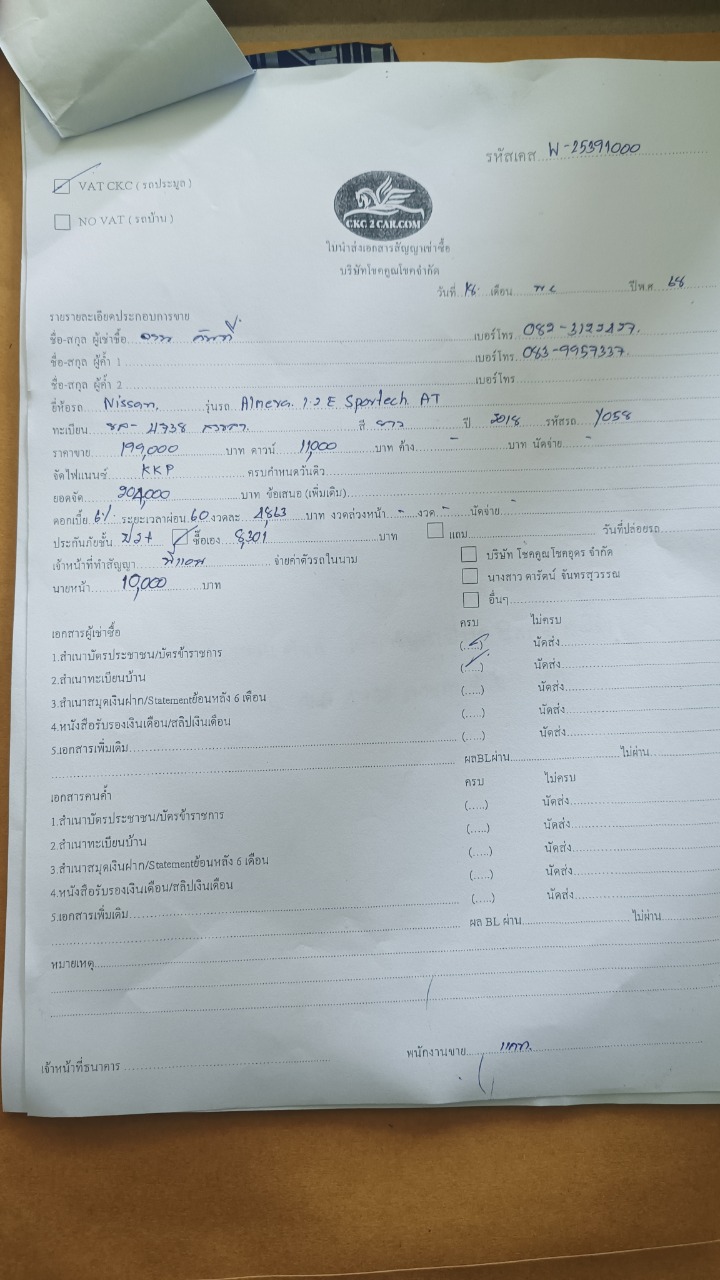 รหัสเคส W-25391000
VAT CKC ( รถประมูล )
NO VAT ( รถบ้าน )
CKC 2 CAR.COM
ใบนำส่งเอกสารสัญญาเช่าซื้อ
บริษัทโชคคูณโชคจำกัด
วันที่ 18 เดือน พ.ย ปีพ.ศ. 68
รายรายละเอียดประกอบการขาย
ชื่อ-สกุล ผู้เช่าซื้อ เบอร์โทร 082-3122427
ชื่อ-สกุล ผู้ค้ำ 1 เบอร์โทร 083-9957337
ชื่อ-สกุล ผู้ค้ำ 2 เบอร์โทร
ยี่ห้อรถ Nissan รุ่นรถ Almera 1.2 E Sportech AT
ทะเบียน 4738 สงขลา สี ขาว ปี 2018 รหัสรถ Y058
ราคาขาย 199,000 บาท ดาวน์ 11,000 บาท ค้าง - บาท นัดจ่าย -
จัดไฟแนนซ์ KKP ครบกำหนดวันดิว
ยอดจัด 204,000 บาท ข้อเสนอ (เพิ่มเติม)
ดอกเบี้ย 6% ระยะเวลาผ่อน 60 งวดละ 4,863 บาท งวดล่วงหน้า - งวด - นัดจ่าย -
ประกันภัยชั้น ป2+ ซื้อเอง 8,301 บาท แถม วันที่ปล่อยรถ
เจ้าหน้าที่ทำสัญญา จ่ายค่าตัวรถในนาม บริษัท โชคคูณโชคอุดร จำกัด
นายหน้า 10,000 บาท นางสาว ดารัตน์ จันทรสุวรรณ
อื่นๆ
เอกสารผู้เช่าซื้อ ครบ ไม่ครบ
1.สำเนาบัตรประชาชน/บัตรข้าราชการ (.....) นัดส่ง
2.สำเนาทะเบียนบ้าน (.....) นัดส่ง
3.สำเนาสมุดเงินฝาก/Statementย้อนหลัง 6 เดือน (.....) นัดส่ง
4.หนังสือรับรองเงินเดือน/สลิปเงินเดือน (.....) นัดส่ง
5.เอกสารเพิ่มเติม (.....) นัดส่ง
ผลBLผ่าน ไม่ผ่าน
เอกสารคนค้ำ ครบ ไม่ครบ
1.สำเนาบัตรประชาชน/บัตรข้าราชการ (.....) นัดส่ง
2.สำเนาทะเบียนบ้าน (.....) นัดส่ง
3.สำเนาสมุดเงินฝาก/Statementย้อนหลัง 6 เดือน (.....) นัดส่ง
4.หนังสือรับรองเงินเดือน/สลิปเงินเดือน (.....) นัดส่ง
5.เอกสารเพิ่มเติม (.....) นัดส่ง
ผล BL ผ่าน ไม่ผ่าน
หมายเหตุ
เจ้าหน้าที่ธนาคาร พนักงานขาย